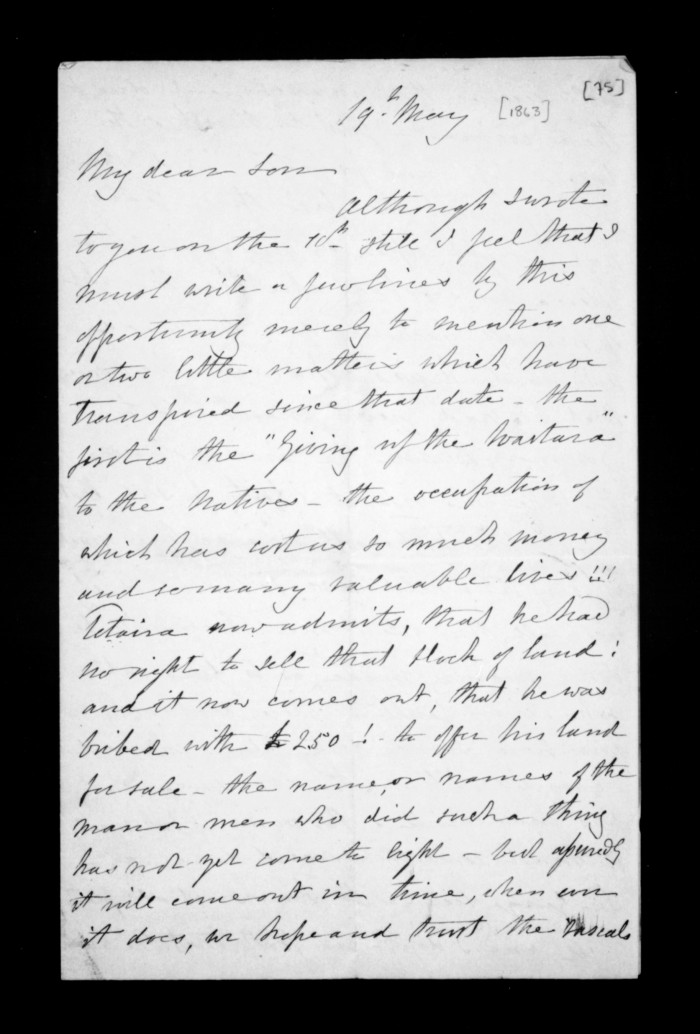 [75]
19th May [1863]
My dear Son
Although I wrote
to you on the 10th still I feel that I
must write a few lines by this
opportunity merely to mention one
or two little matters which have
transpired since that date - the
first is the "Giving up the Waitara"
to the Natives - the occupation of
which has cost us so much money
and so many valuable lives!!!
Teteira now admits, that he had
no right to sell that block of land!
and it now comes out, that he was
bribed with £250! to offer his land
for sale - the name, or names of the
man or men who did such a thing
has not yet come to light - but assuredly
it will come out in time, when ever
it does, we hope and trust the rascals